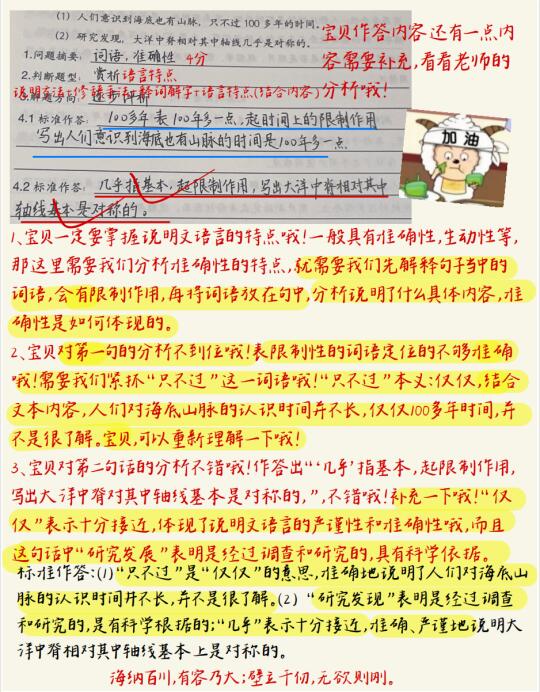 (1) 人们意识到海底也有山脉，只不过100多年的时间。
(2) 研究发现，大洋中脊相对其中轴线几乎是对称的。
1.问题摘要： 词语，准确性 4分
2.判断题型： 赏析语言特点
说明方法+修辞手法+释词解字+语言特点(结合内容)
3.解题方向： 逐步评析
4.1 标准作答： 100多年表100年多一点，起时间上的限制作用
写出人们意识到海底也有山脉的时间是100年多一点.
4.2 标准作答： 几乎指基本，起限制作用，写出大洋中脊相对其中
轴线基本是对称的。
宝贝作答内容还有一点内
容需要补充，看看老师的
分析哦！
加油
1、宝贝一定要掌握说明文语言的特点哦！一般具有准确性，生动性等，
那这里需要我们分析准确性的特点，就需要我们先解释句子当中的
词语，会有限制作用，再将词语放在句中，分析说明了什么具体内容，准
确性是如何体现的。
2、宝贝对第一句的分析不到位哦！表限制性的词语定位的不够准确
哦！需要我们紧抓“只不过”这一词语哦！“只不过”本义：仅仅，结合
文本内容，人们对海底山脉的认识时间并不长，仅仅100多年时间，并
不是很了解。宝贝，可以重新理解一下哦！
3、宝贝对第二句话的分析不错哦！作答出“‘几乎’指基本，起限制作用，
写出大洋中脊对其中轴线基本是对称的，”，不错哦！补充一下哦！“仅
仅”表示十分接近，体现了说明文语言的严谨性和准确性哦，而且
这句话中“研究发展”表明是经过调查和研究的，具有科学依据。
标准作答：(1)“只不过”是“仅仅”的意思，准确地说明了人们对海底山
脉的认识时间并不长，并不是很了解。(2) “研究发现”表明是经过调查
和研究的，是有科学根据的；“几乎”表示十分接近，准确、严谨地说明大
洋中脊相对其中轴线基本上是对称的。
海纳百川，有容乃大；壁立千仞，无欲则刚。